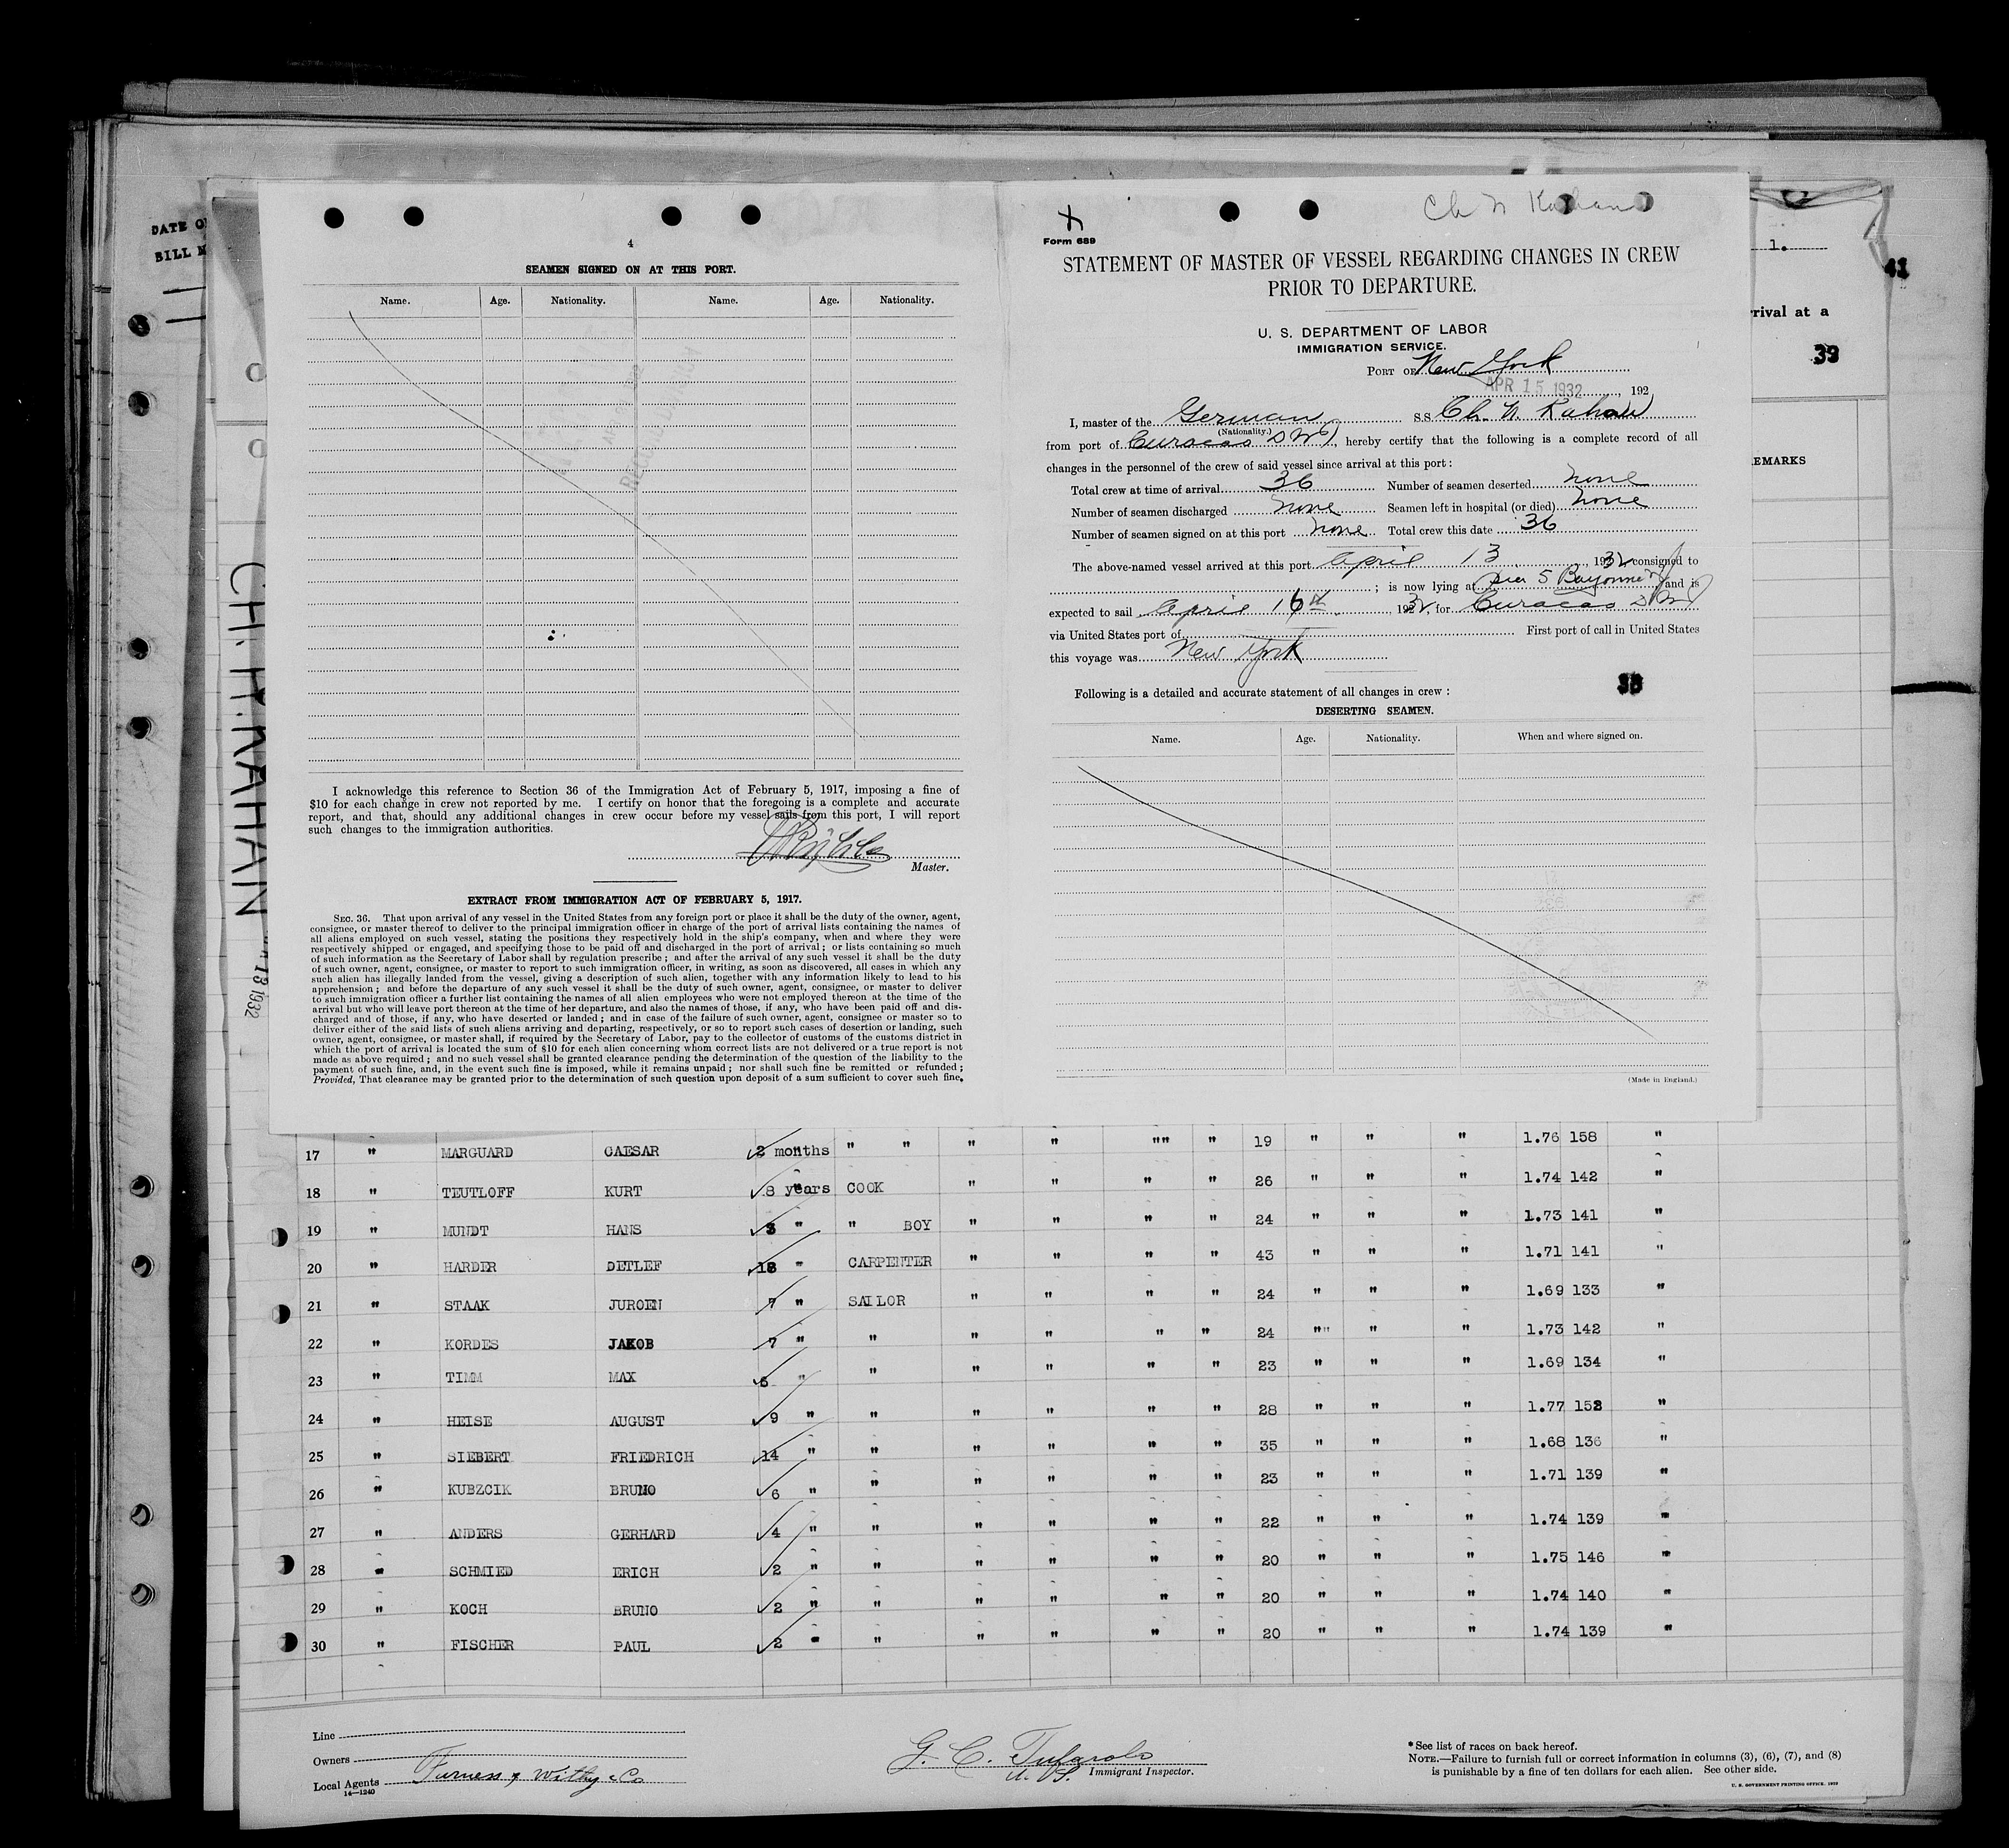 DATE O
BILL N
CH. N. KAHAN
13 1932
4
SEAMEN SIGNED ON AT THIS PORT.
Name. Age. Nationality. Name. Age. Nationality.
I acknowledge this reference to Section 36 of the Immigration Act of February 5, 1917, imposing a fine of
$10 for each change in crew not reported by me. I certify on honor that the foregoing is a complete and accurate
report, and that, should any additional changes in crew occur before my vessel sails from this port, I will report
such changes to the immigration authorities.
Master.
EXTRACT FROM IMMIGRATION ACT OF FEBRUARY 5, 1917.
SEC. 36. That upon arrival of any vessel in the United States from any foreign port or place it shall be the duty of the owner, agent,
consignee, or master thereof to deliver to the principal immigration officer in charge of the port of arrival lists containing the names of
all aliens employed on such vessel, stating the positions they respectively hold in the ship's company, when and where they were
respectively shipped or engaged, and specifying those to be paid off and discharged in the port of arrival; or lists containing so much
of such information as the Secretary of Labor shall by regulation prescribe; and after the arrival of any such vessel it shall be the duty
of such owner, agent, consignee, or master to report to such immigration officer, in writing, as soon as discovered, all cases in which any
such alien has illegally landed from the vessel, giving a description of such alien, together with any information likely to lead to his
apprehension; and before the departure of any such vessel it shall be the duty of such owner, agent, consignee, or master to deliver
to such immigration officer a further list containing the names of all alien employees who were not employed thereon at the time of the
arrival but who will leave port thereon at the time of her departure, and also the names of those, if any, who have been paid off and dis-
charged and of those, if any, who have deserted or landed; and in case of the failure of such owner, agent, consignee or master so to
deliver either of the said lists of such aliens arriving and departing, respectively, or so to report such cases of desertion or landing, such
owner, agent, consignee, or master shall, if required by the Secretary of Labor, pay to the collector of customs of the customs district in
which the port of arrival is located the sum of $10 for each alien concerning whom correct lists are not delivered or a true report is not
made as above required; and no such vessel shall be granted clearance pending the determination of the question of the liability to the
payment of such fine, and, in the event such fine is imposed, while it remains unpaid; nor shall such fine be remitted or refunded;
Provided, That clearance may be granted prior to the determination of such question upon deposit of a sum sufficient to cover such fine.
Ch N Kahan
Form 689
STATEMENT OF MASTER OF VESSEL REGARDING CHANGES IN CREW
PRIOR TO DEPARTURE.
U. S. DEPARTMENT OF LABOR
IMMIGRATION SERVICE.
PORT OF New York
APR 15 1932, 192
I, master of the German S.S. Ch. N. Kahan
(Nationality.)
from port of Curacao DWI, hereby certify that the following is a complete record of all
changes in the personnel of the crew of said vessel since arrival at this port:
Total crew at time of arrival 36 Number of seamen deserted none
Number of seamen discharged none Seamen left in hospital (or died) none
Number of seamen signed on at this port none Total crew this date 36
The above-named vessel arrived at this port April 13, 1932 consigned to
; is now lying at Pier 5 Bayonne NJ and is
expected to sail April 16th, 1932, for Curacao DWI
via United States port of First port of call in United States
this voyage was New York
Following is a detailed and accurate statement of all changes in crew:
DESERTING SEAMEN.
Name. Age. Nationality. When and where signed on.
(Made in England.)
1.
41
rival at a
39
EMARKS
17 " MARGUARD CAESAR 2 months " " " " "" " 19 " " " 1.76 158 "
18 " TEUTLOFF KURT 8 years COOK " " " " 26 " " " 1.74 142 "
19 " MUNDT HANS 3 " " BOY " " " " 24 " " " 1.73 141 "
20 " HARDER DETLEF 18 " CARPENTER " " " " 43 " " " 1.71 141 "
21 " STAAK JUROEN 7 " SAILOR " " " " 24 " " " 1.69 133 "
22 " KORDES JAKOB 7 " " " " " " 24 "" " " 1.73 142 "
23 " TIMM MAX 6 " " " " " " 23 " " " 1.69 134 "
24 " HEISE AUGUST 9 " " " " " " 28 " " " 1.77 152 "
25 " SIEBERT FRIEDRICH 14 " " " " " " 35 " " " 1.68 136 "
26 " KUBZCIK BRUNO 6 " " " " " " 23 " " " 1.71 139 "
27 " ANDERS GERHARD 4 " " " " " " 22 " " " 1.74 139 "
28 " SCHMIED ERICH 2 " " " " " " 20 " " " 1.75 146 "
29 " KOCH BRUNO 2 " " " " " " 20 " " " 1.74 140 "
30 " FISCHER PAUL 2 " " " " " " 20 " " " 1.74 139 "
Line
Owners
Local Agents Furness, Withy & Co
14—1240
U. S. Immigrant Inspector.
*See list of races on back hereof.
NOTE.—Failure to furnish full or correct information in columns (3), (6), (7), and (8)
is punishable by a fine of ten dollars for each alien. See other side.
U. S. GOVERNMENT PRINTING OFFICE. 1929